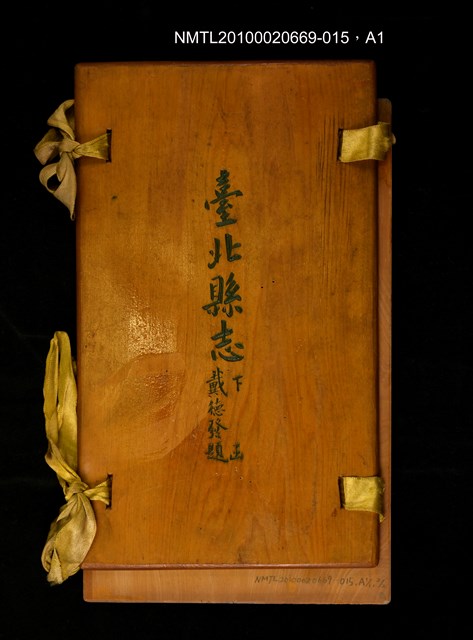 NMTL20100020669-015，A1
臺北縣志
下
戴德發題
NMTL20100020669 015. A½.